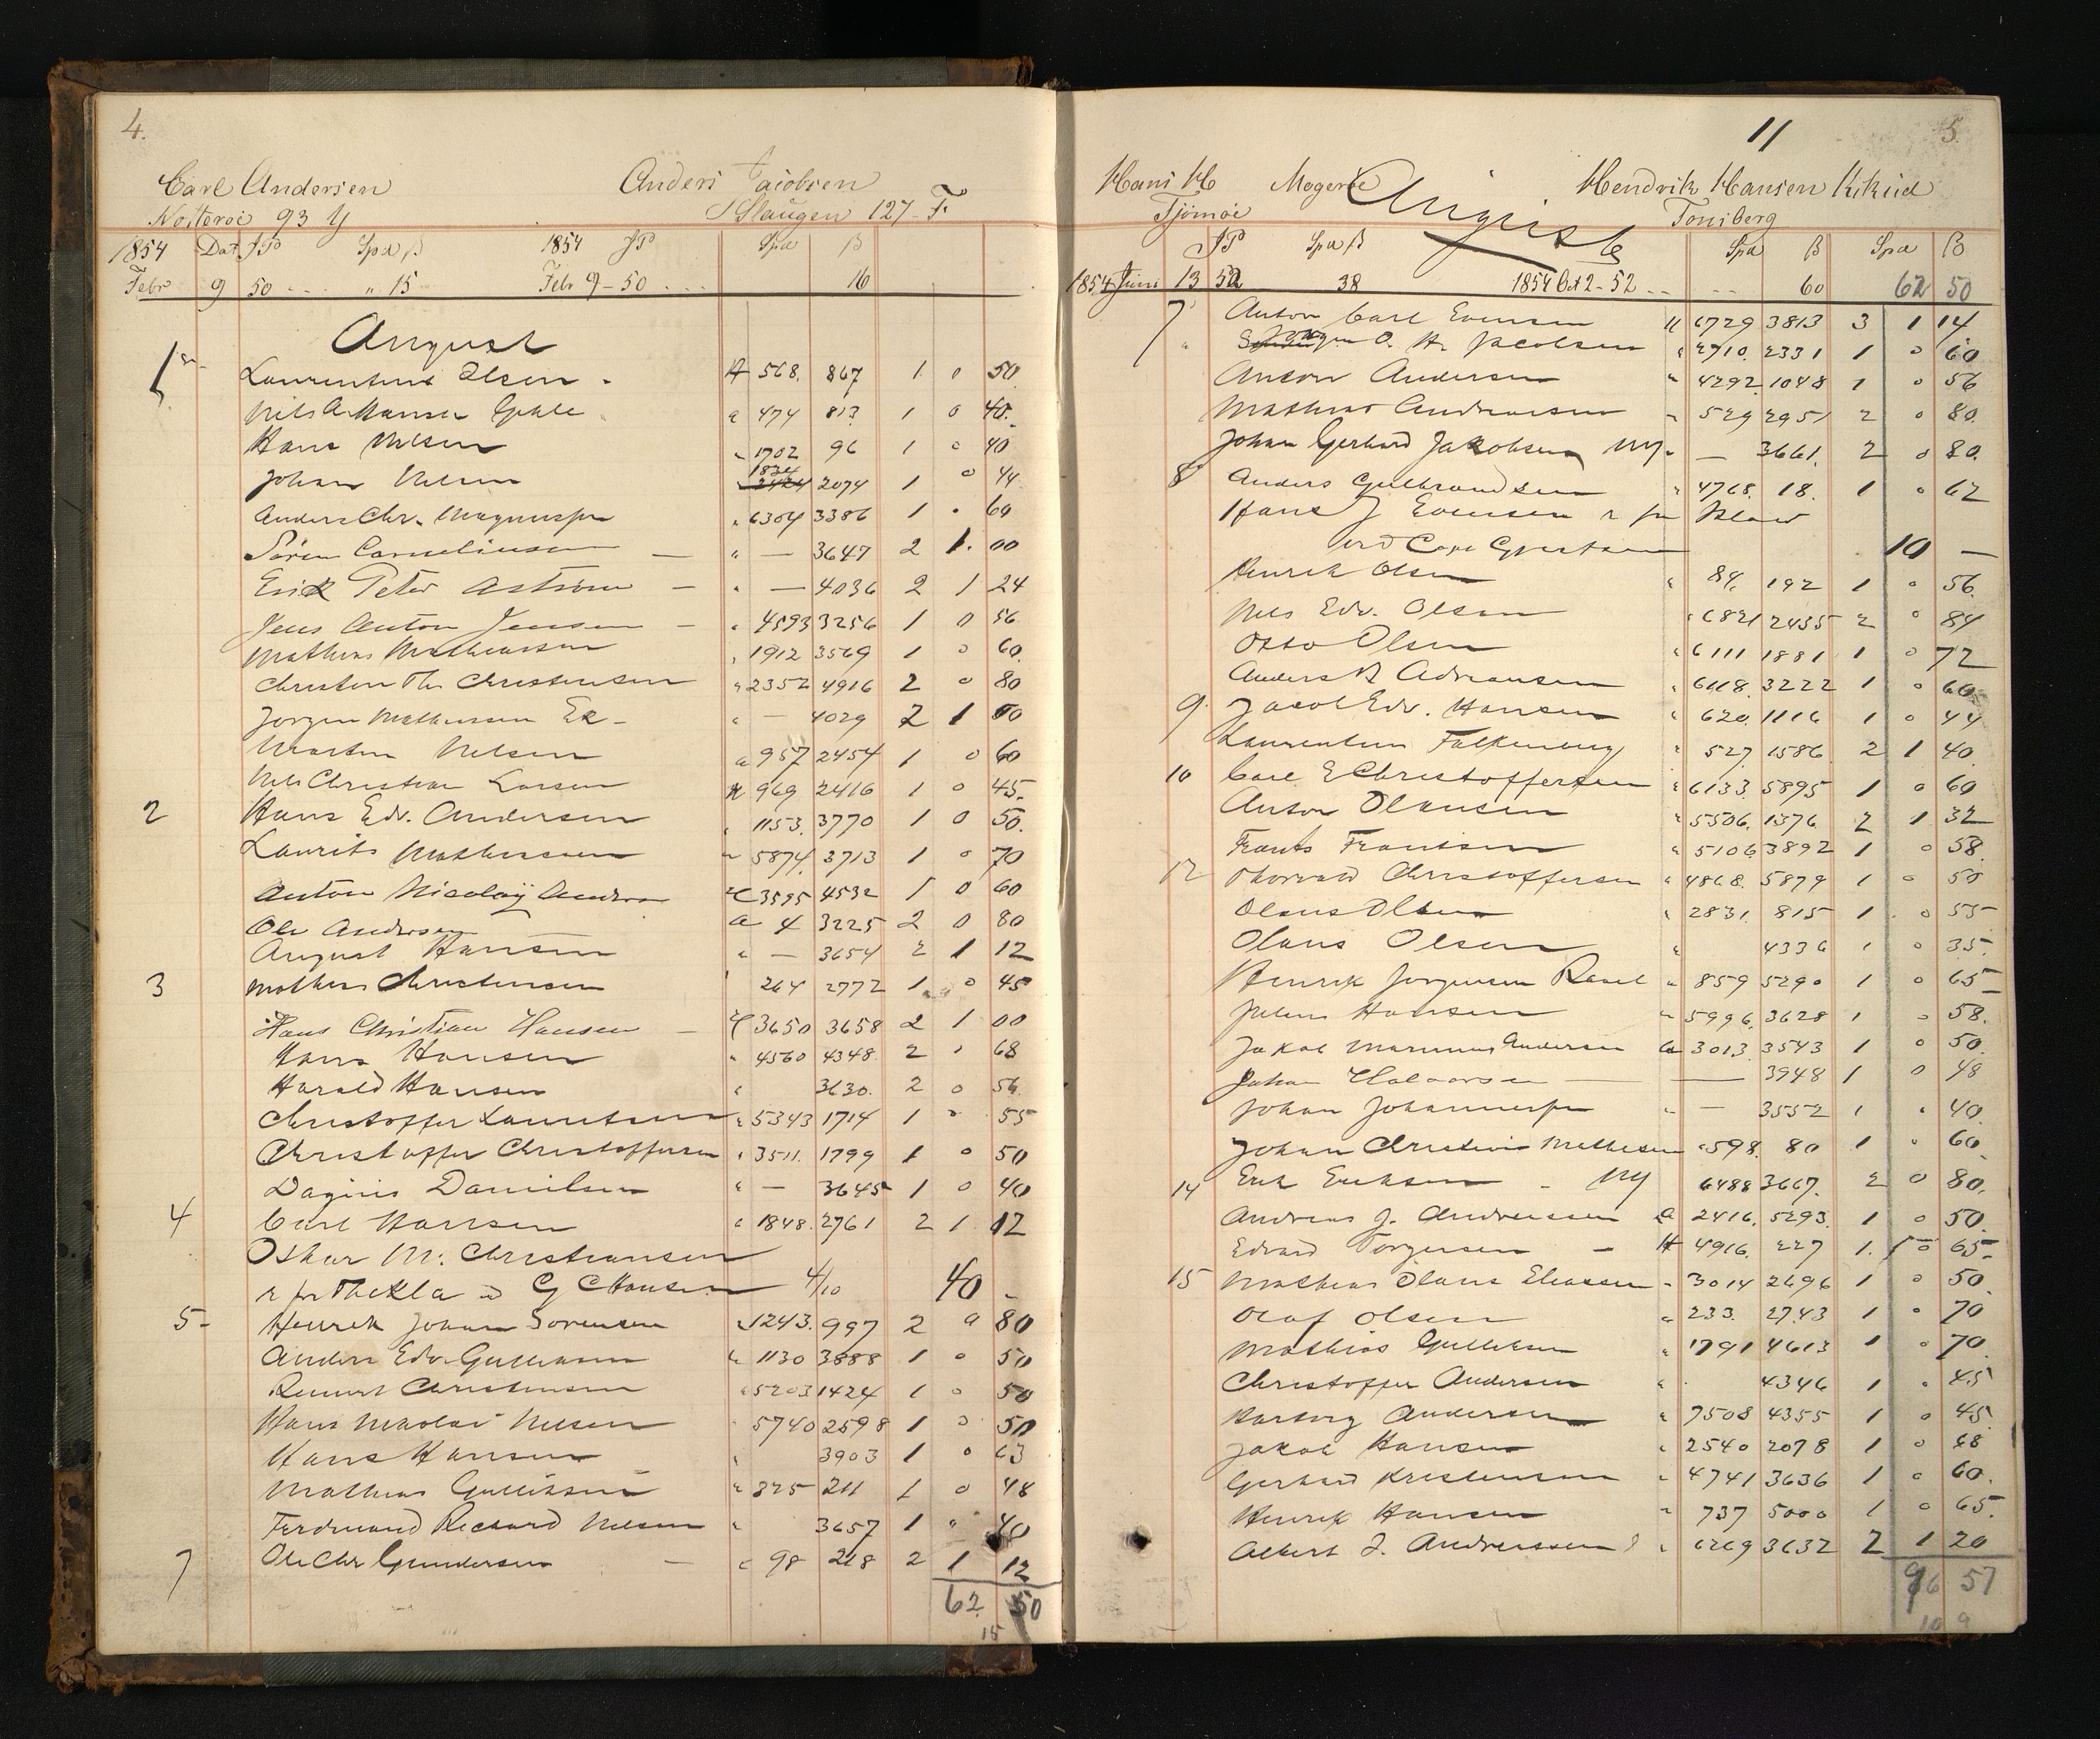 4.
Carl Andersen Anders Jacobsen
Nøtterøe 93 y Slaugen 127 - F
1854 Dat JP Spd ß 1854 JP Spd ß
Febr 9 50 " 15 Febr 9 - 50 16
August
1 Laurentius Olsen H 568. 867 1 0 50
Nils A Hansen a 474 813 1 0 40.
Hans Nilsen " 1702 96 1 0 40
1834
Johan Nilsen 2074 1 0 44
Anders Chr. Magnussen " 6304 3386 1 . 60
Søren Corneliussen — " — 3647 2 1. 00
Erick Peter Astrøm — " — 4036 2 1 24
Jens Anton Jensen — " 4593 3256 1 0 56
Mathias Mathiassen " 1912 3569 1 0 60
Christen Th. Christensen " 2352 4916 2 0 80
Jørgen Mathiassen Ek - " — 4029 2 1 00
Morten Nilsen a 957 2454 1 0 60
Nils Christian Larsen H 969 2416 1 0 45.
2 Hans Edv. Andersen " 1153. 3770 1 0 50.
Laurits Mathiassen " 5874 3713 1 0 70
Anton Nicolaij 3595 4532 1 0 60
Ole Andersen a 4 3225 2 0 80
August Hansen " — 3654 2 1 12
3 Mathias Christensen " 264 2772 1 0 45
Hans Christian Hansen — 3650 3658 2 1 00
Hans Hansen " 4560 4348. 2 1 68
Harald Hansen " 3630. 2 0 56
Christoffer Lauritsen " 5343 1714 1 0 55
Christoffer Christoffersen " 3511. 1799 1 0 50
Daginis Danielsen " — 3645 1 0 40
4 Carl Hansen " 1848. 2761 2 1 12
Oskar M. Christiansen
r for Thekla C Hansen 4/10 40 -
5- Henrik Johan Sørensen 1243. 997 2 0 80
Anders Edv. Gulliksen " 1130 3888 1 0 50
Christensen " 5203 1424 1 0 50
Hans Nicolai Nilsen 5740 2598 1 0 50
Hans Hansen " 3903 1 0 63
Mathias Gulliksen " 825 211 1 0 48
Ferdinand Richard Nilsen " 3657 1 " 40
7 Ole Chr Gundersen — " 98 218 2 1 12
62 50
15
11 5.
Hans H Magerøe Hendrik Hansen Kikud
Tjömöe August Tonsberg
JP Spd ß Spd ß Spd ß
1854 Juni 13 52 38 1854 Oct 2 - 52 60 62 50
7 Anton Carl Evensen H 6729 3813 3 1 14
" Jørgen O. H. Jacobsen " 2710. 2331 1 0 60
Anton Andersen " 4292 1048 1 0 56
Mathias Andreassen " 529 2951 2 0 80.
Johan Gerhard Jakobsen Ny. — 3661. 2 0 80.
8 Anders Gulbrandsen " 4768. 18. 1 0 62
Hans J Evensen r for
10 —
Henrik Olsen " 84. 192 1 0 56.
Nils Edv. Olsen " 6821 2435 2 0 84
Otto Olsen " 6111 1881 1 0 72
Anders B Adriansen " 6118. 3222 1 0 60
9. Jacob Edv. Hansen " 620. 1116 1 0 44
Laurentius Falkenberg " 527 1586 2 1 40.
10 Carl E Christoffersen " 6133. 5895 1 0 60
Anton Olausen " 5506. 1376 2 1 32
Frants Frantsen " 5106 3892 1 0 58.
12 Thorvald Christoffersen " 4868. 5879 1 0 50
Olaus Olsen " 2831. 815 1 0 55
Olaus Olsen " 4336 1 0 35.
Henrik Jørgensen " 859 5290 1 0 65
Julius Hansen " 5996. 3628 1 0 58.
Jakob Marinius Andersen a 3013. 3543 1 0 50.
Johan Halvorsen — — 3948 1 0 48
Johan Johannessen " — 3552 1 . 40.
Johan Christian Mathisen " 598. 80 1 0 60.
14 Erik Eriksen - Ny 6488 3667. 2 0 80.
Andreas J. Andreassen a 2416. 5293. 1 0 50.
Edvard Torgersen — H 4916. 227 1. 0 65.
15 Mathias Olaus Eliassen - 3014 2696 1 0 50.
Olaf Olsen " 233. 2743 1 0 70
Mathias Gulliksen " 1791 4613 1 0 70.
Christoffer Andersen " 4346 1 . 45
Andersen " 7508 4355 1 0 45
Jakob Hansen " 2540 2078 1 0 68
Gerhard Kristensen " 4741 3636 1 0 60.
Henrik Hansen " 737 5000 1 0 65.
Albert J. Andreassen " 6269 3632 2 1 20
96 57
10 9